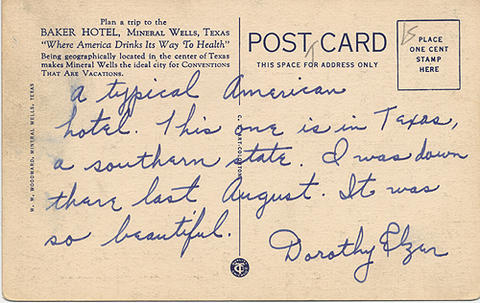 Plan a trip to the
BAKER HOTEL, MINERAL WELLS, TEXAS
"Where America Drinks Its Way To Health"
Being geographically located in the center of Texas
makes Mineral Wells the ideal city for CONVENTIONS
THAT ARE VACATIONS.
POST CARD
THIS SPACE FOR ADDRESS ONLY
PLACE
ONE CENT
STAMP
HERE
15
WOODWARD, MINERAL WELLS, TEXAS
a typical American
hotel. This one is in Texas,
a southern state. I was down
there last August. It was
so beautiful.
Dorothy Elzer